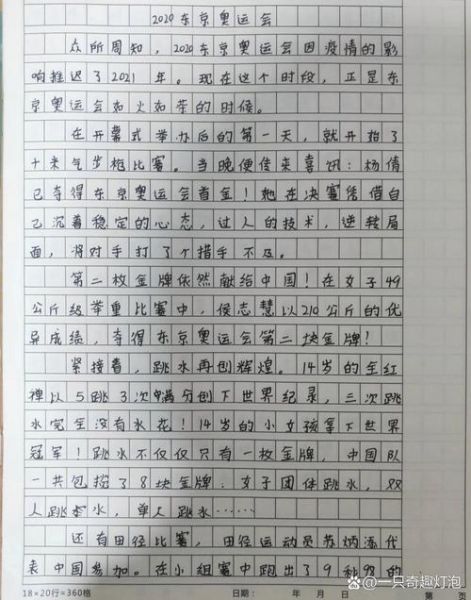 2020东京奥运会
众所周知，2020东京奥运会因疫情的影
响推迟了2021年。现在这个时段，正是东
京奥运会如火如荼的时候。
在开幕式举办后的第一天，就开始了
十米气步枪比赛。当晚便传来喜讯：杨倩
已夺得东京奥运会首金！她在决赛凭借自
己沉着稳定的心态，过人的技术，逆转局
面，将对手打了个措手不及。
第二枚金牌依然献给中国！在女子49
公斤级举重比赛中，侯志慧以210公斤的优
异成绩，夺得东京奥运会第二块金牌！
紧接着，跳水再创辉煌。14岁的全红
禅以5跳3次满分创下世界纪录，三次跳
水完全没有水花！14岁的小女孩拿下世界
冠军！跳水不仅仅只有一枚金牌，中国队
一共包揽了8块金牌：女子团体跳水，双
人跳水，单人跳水……
还有田径比赛，田径运动员苏炳添代
表中国参加。在小组赛中跑出了9秒98的
18×20行=360格 日期： 年 月 日 第 页
@一只奇趣灯泡